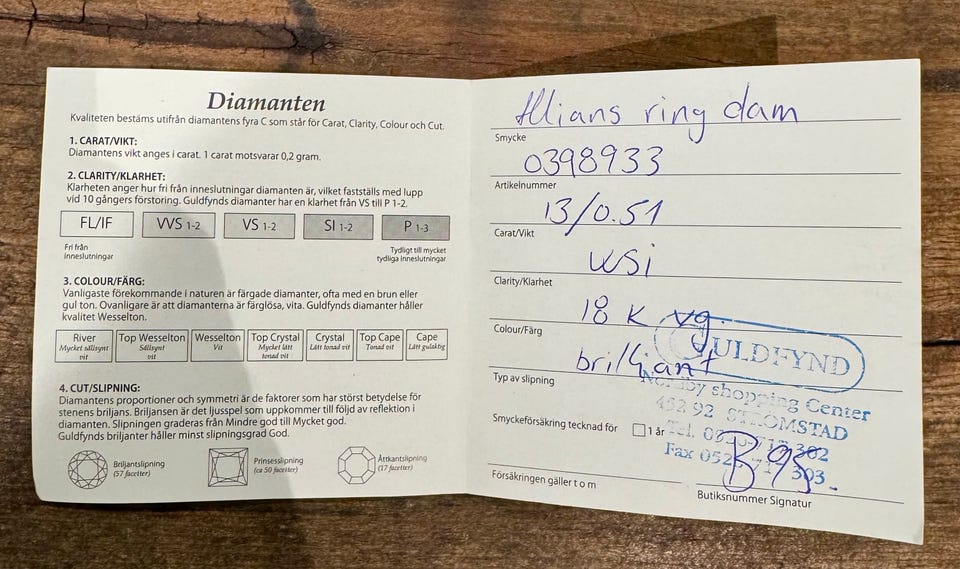 Diamanten
Kvaliteten bestäms utifrån diamantens fyra C som står för Carat, Clarity, Colour och Cut.
1. CARAT/VIKT:
Diamantens vikt anges i carat. 1 carat motsvarar 0,2 gram.
2. CLARITY/KLARHET:
Klarheten anger hur fri från inneslutningar diamanten är, vilket fastställs med lupp
vid 10 gångers förstoring. Guldfynds diamanter har en klarhet från VS till P 1-2.
FL/IF VVS 1-2 VS 1-2 SI 1-2 P 1-3
Fri från
inneslutningar
Tydligt till mycket
tydliga inneslutningar
3. COLOUR/FÄRG:
Vanligaste förekommande i naturen är färgade diamanter, ofta med en brun eller
gul ton. Ovanligare är att diamanterna är färglösa, vita. Guldfynds diamanter håller
kvalitet Wesselton.
River Top Wesselton Wesselton Top Crystal Crystal Top Cape Cape
Mycket sällsynt Sällsynt Vit Mycket lätt Lätt tonad vit Tonad vit Lätt gulaktig
vit vit tonad vit
4. CUT/SLIPNING:
Diamantens proportioner och symmetri är de faktorer som har störst betydelse för
stenens briljans. Briljansen är det ljusspel som uppkommer till följd av reflektion i
diamanten. Slipningen graderas från Mindre god till Mycket god.
Guldfynds briljanter håller minst slipningsgrad God.
Briljantslipning
(57 facetter)
Prinsesslipning
(ca 50 facetter)
Åttkantslipning
(17 facetter)
Allians ring dam
Smycke
0398933
Artikelnummer
13/0.51
Carat/Vikt
wsi
Clarity/Klarhet
18 K vg.
Colour/Färg
briljant
Typ av slipning
GULDFYND
shopping Center
452 92 STRÖMSTAD
Smyckeförsäkring tecknad för 1 år
Tel.
Fax
Försäkringen gäller t o m
Butiksnummer Signatur